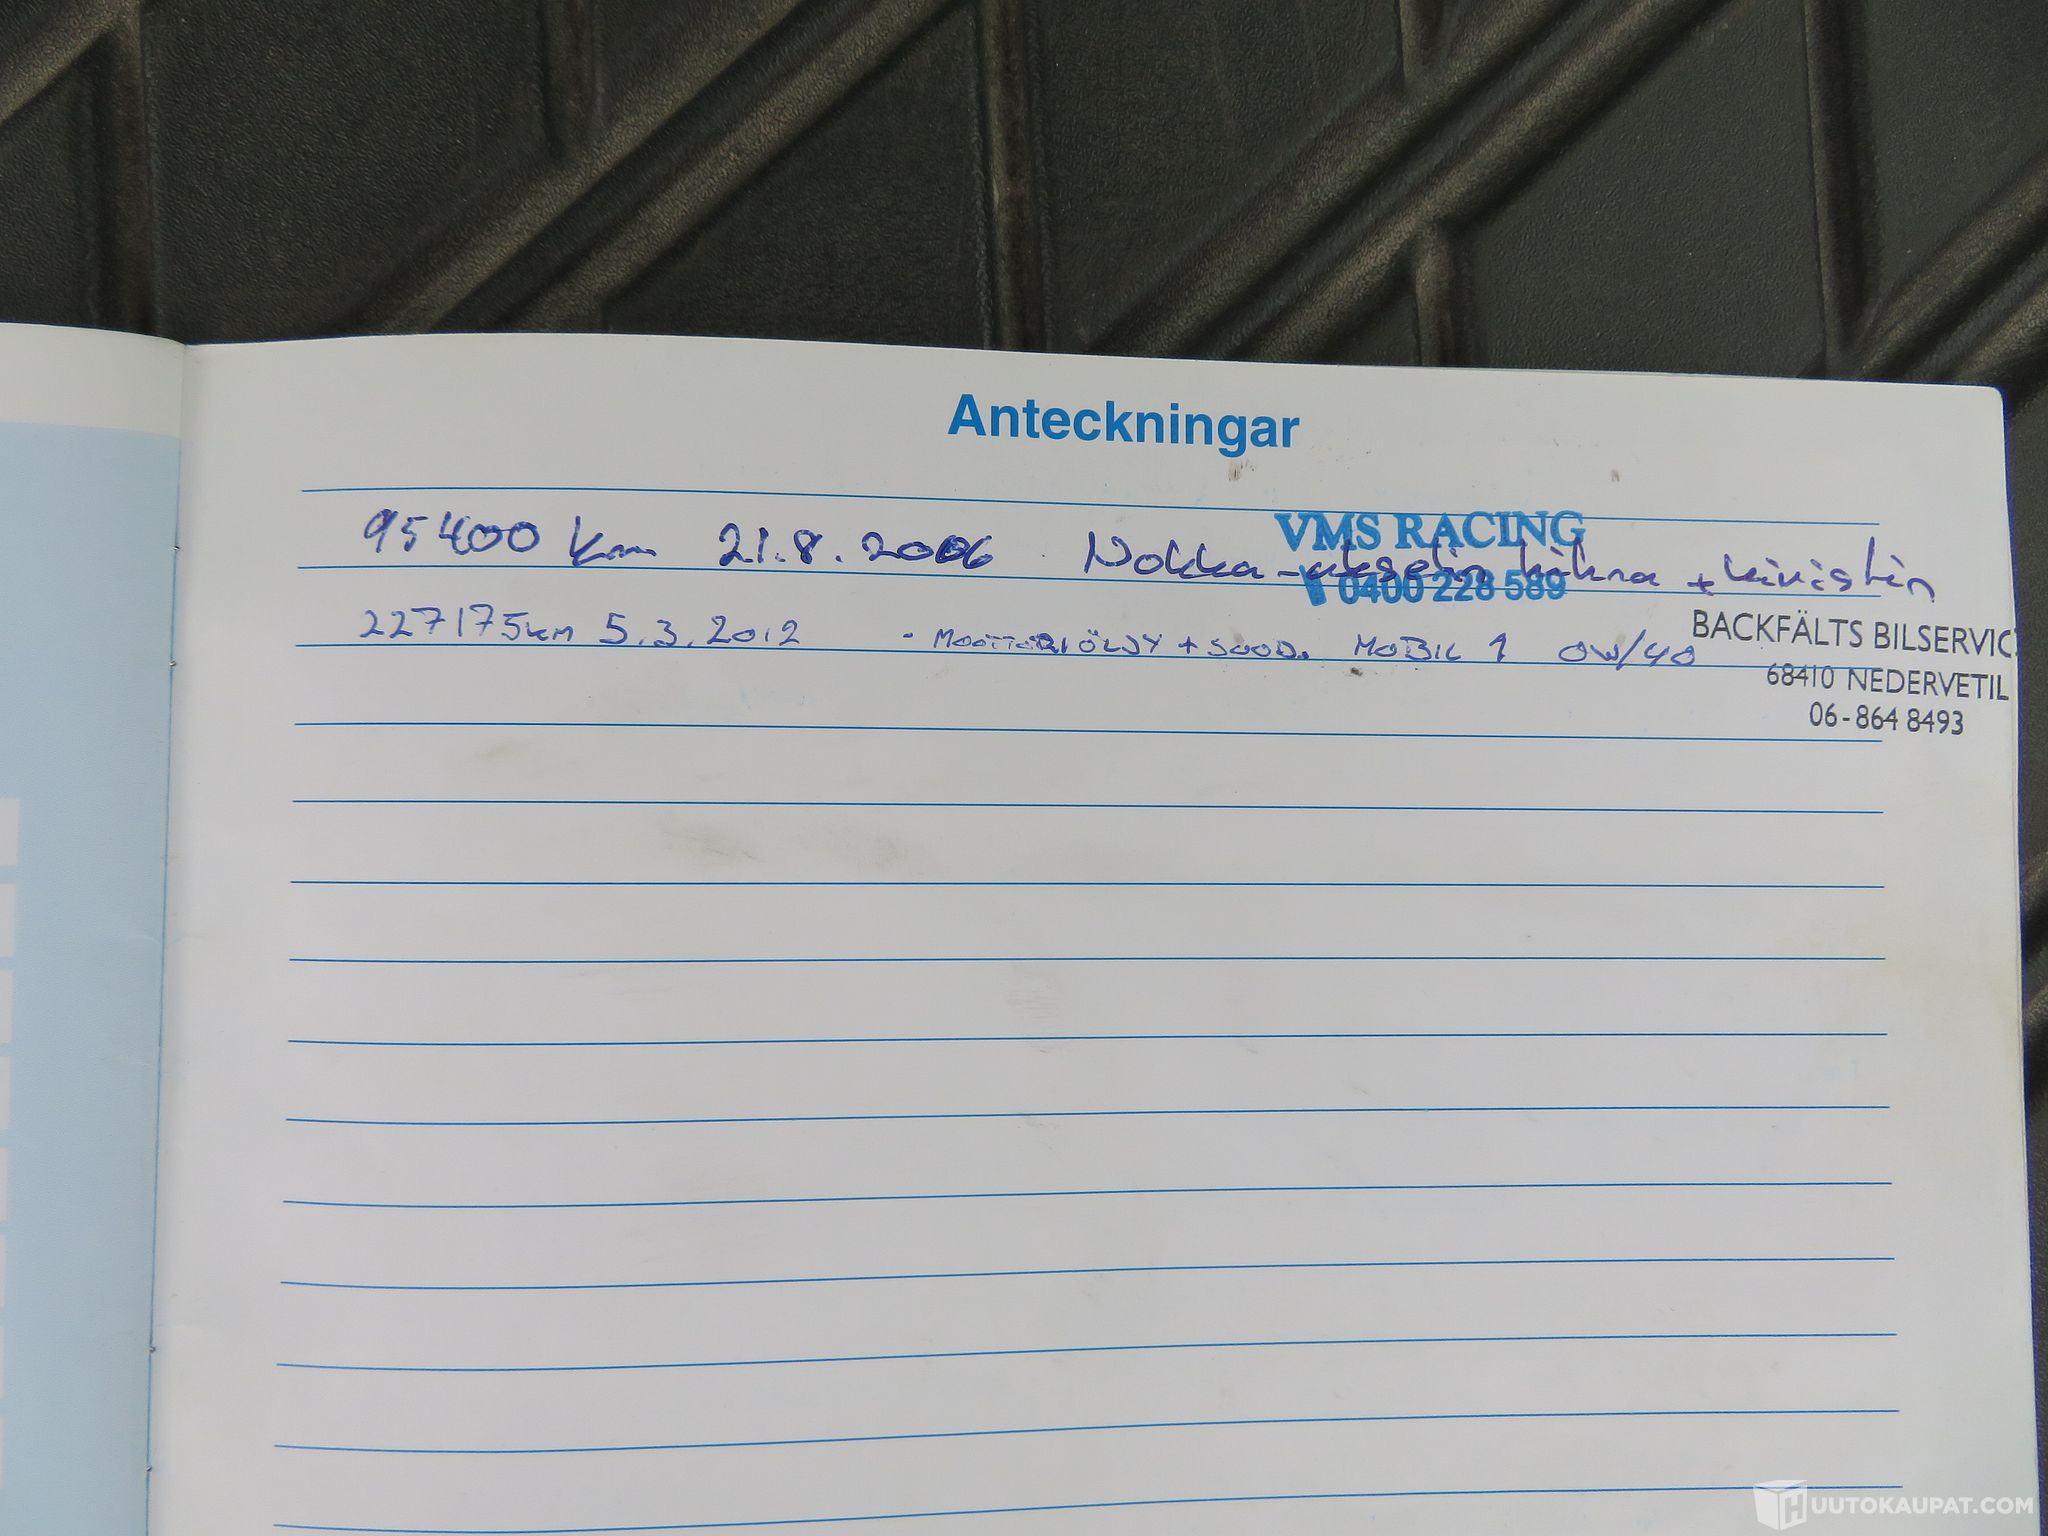 Anteckningar
VMS RACING
95400 km 21.8.2006 Nokka-akselin hihna + kiristin
0400 228 589
227175km 5.3.2012 - MOOTTORIÖLJY + SUOD. MOBIL 1 0W/40
BACKFÄLTS BILSERVIC
68410 NEDERVETIL
06-864 8493
HUUTOKAUPAT.COM